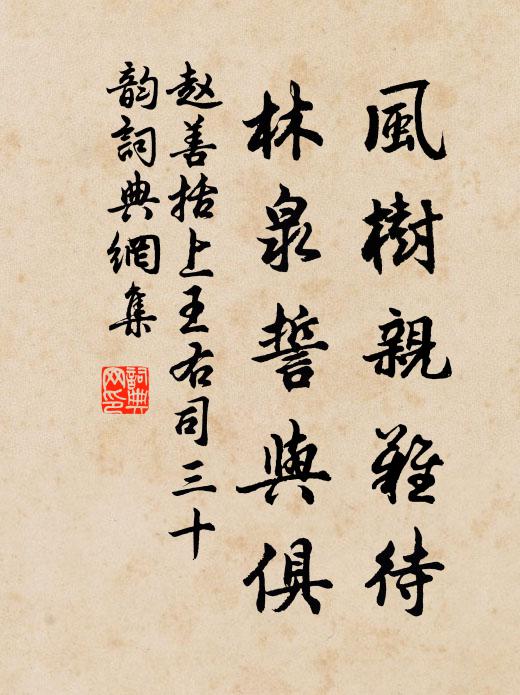 風樹親難待
林泉誓與俱
赵善括上王右司三十
韵詞典網集
詞典網印